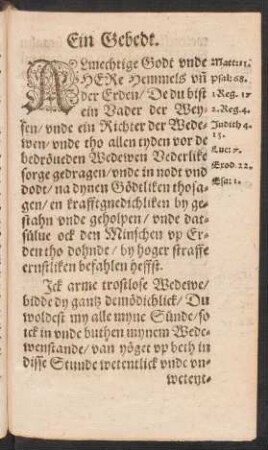 Ein Gebedt.
ALmechtige Godt vnde
HERe Hemmels vñ
der Erden/ De du bist
ein Vader der Wey-
sen/ vnde ein Richter der Wede-
wen/ vnde tho allen tyden vor de
bedröueden Wedewen Vederlike
sorge gedragen/ vnde in nodt vnd
dodt/ na dynen Gödtliken thosa-
gen/ en krafftgnedichliken by ge-
stahn vnde geholpen/ vnde dat-
sülue ock den Minschen vp Er-
den tho dohnde/ by hoger straffe
ernstliken befahlen heffst.
Ick arme trostlose Wedewe/
bidde dy gantz demödichlick/ Du
woldest my alle myne Sünde/ so
ick in vnde buthen mynem Wede-
wenstande/ van yöget vp beth in
disse Stunde wetentlick vnde vn-
weteyt-
Matth: 1.
Psal: 68.
1. Reg. 17
2. Reg. 4.
Judith 4.
13.
Luc: 7.
Exod. 22.
Esa: 1.